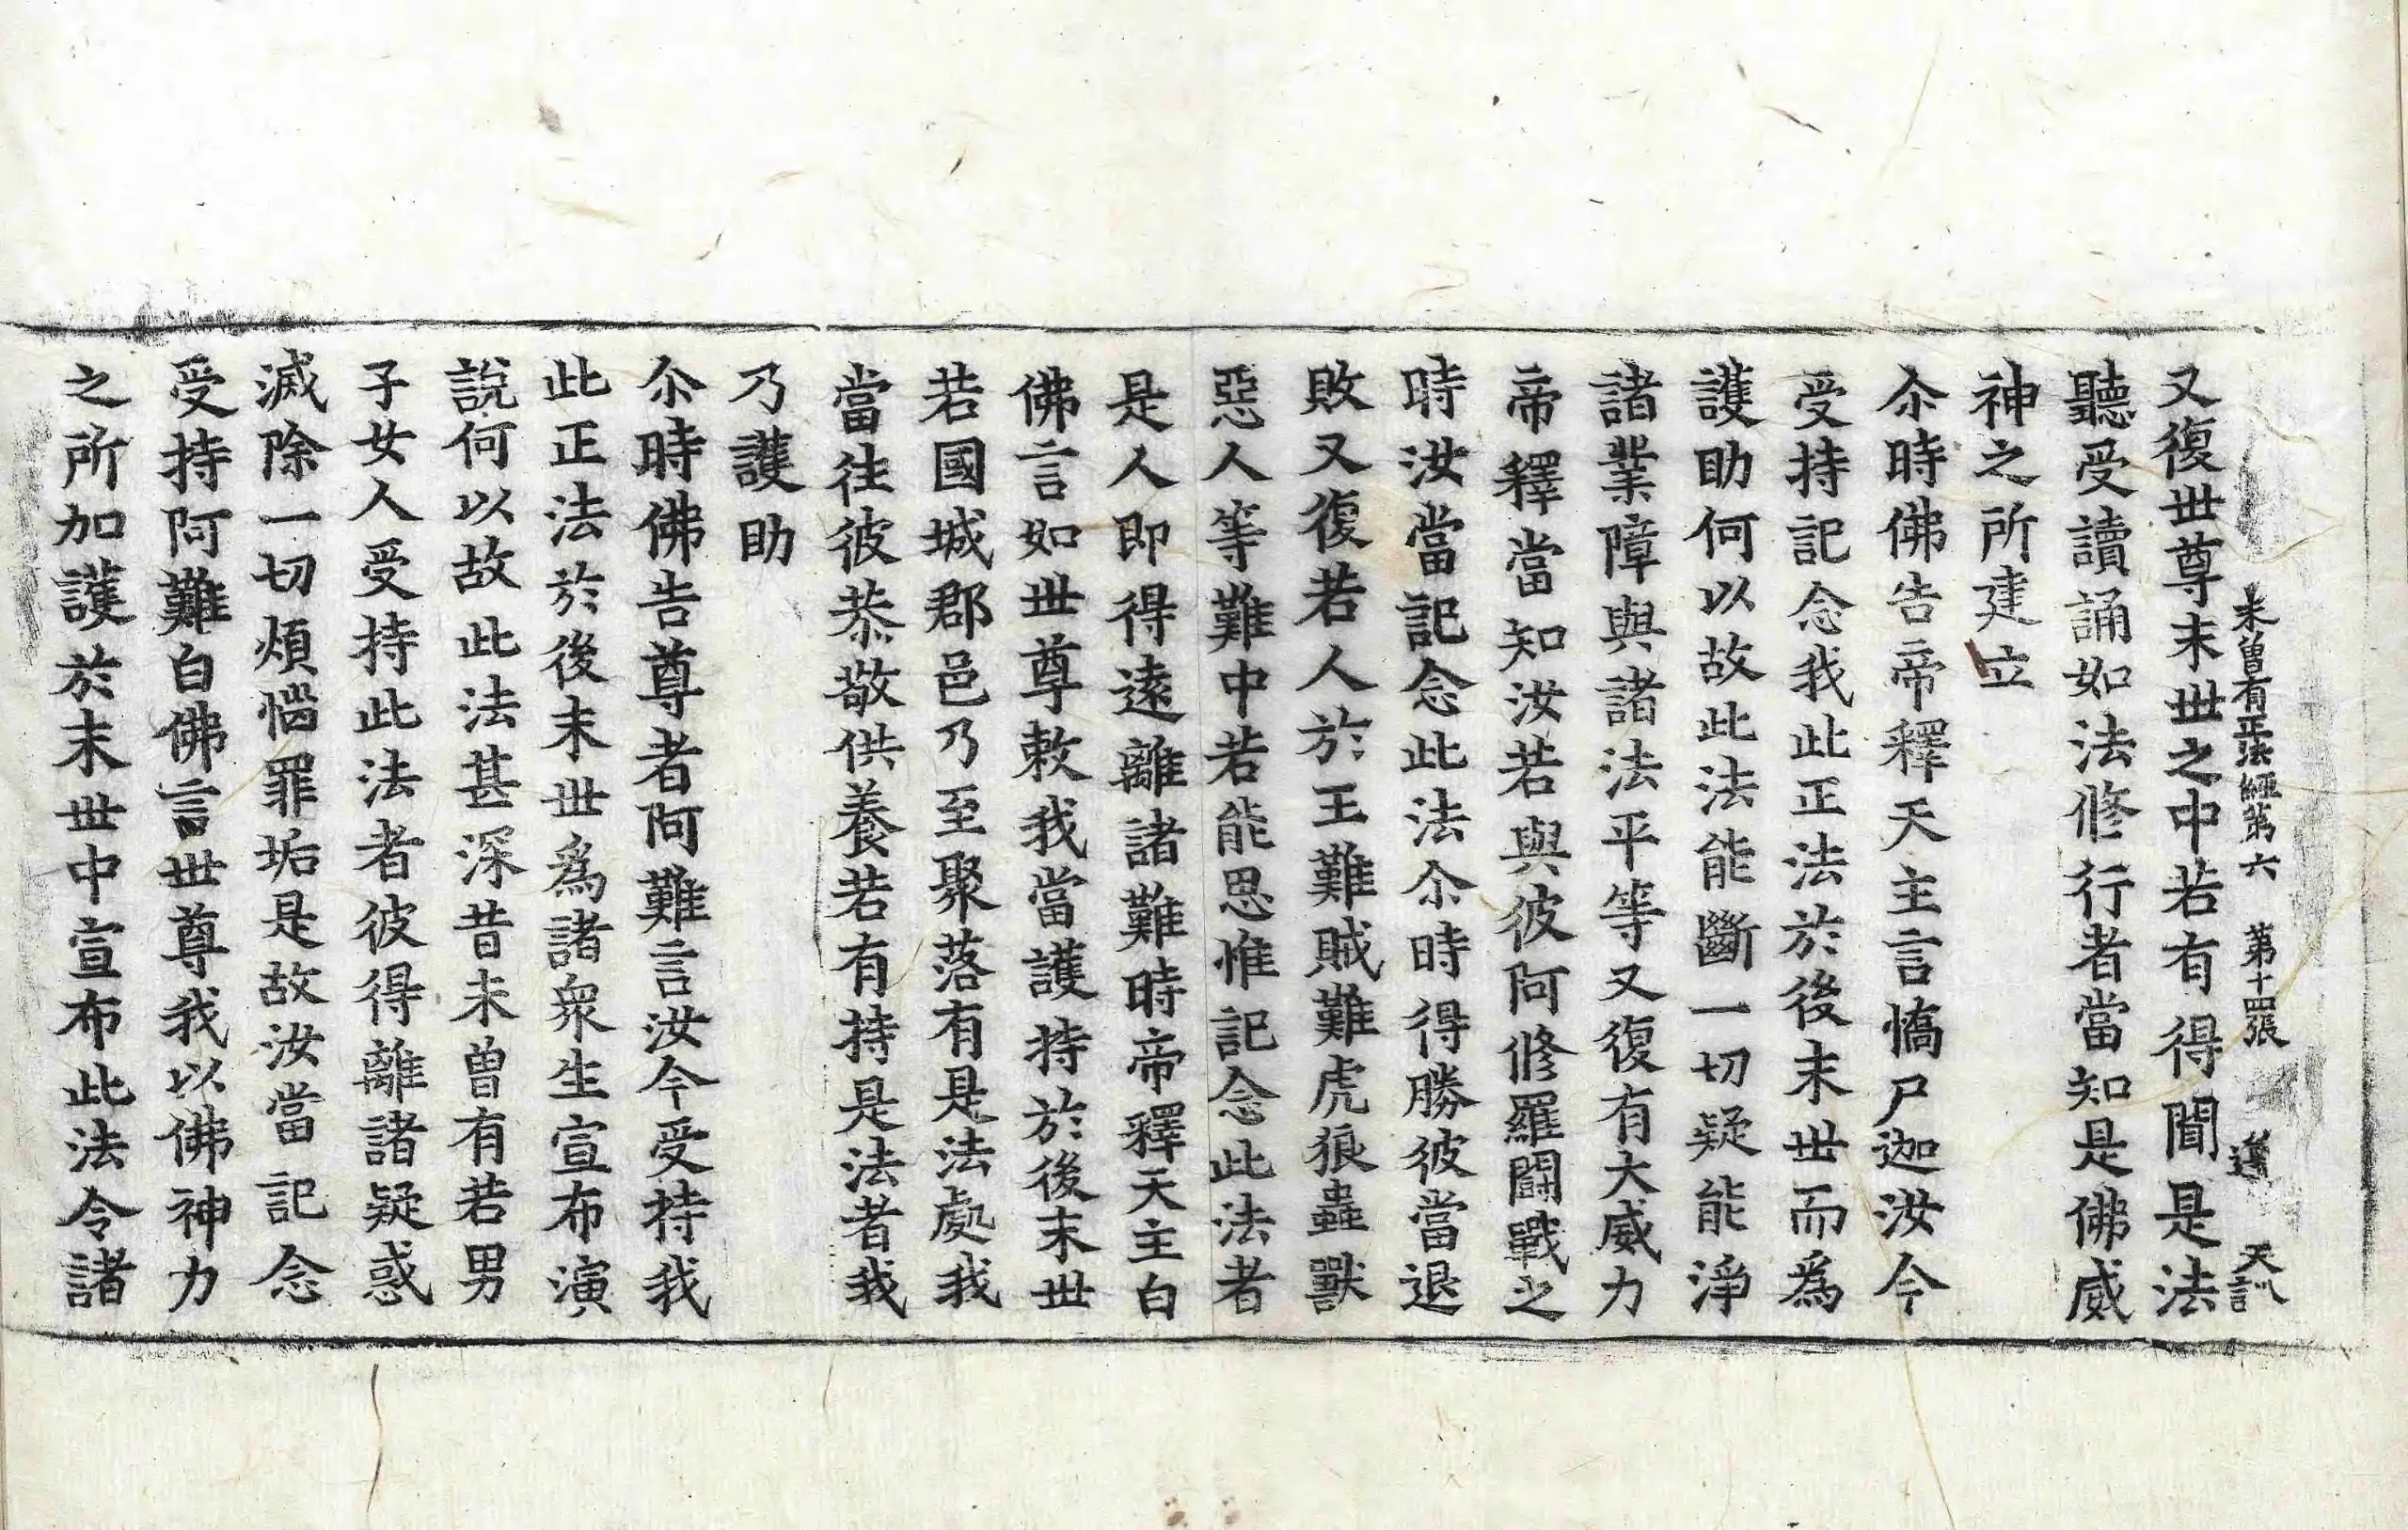 未曾有正法經第六　第十四張　　天訓
又復世尊末世之中若有得聞是法
聽受讀誦如法修行者當知是佛威
神之所建立
尒時佛告帝釋天主言憍尸迦汝今
受持記念我此正法於後末世而為
護助何以故此法能斷一切疑能淨
諸業障與諸法平等又復有大威力
帝釋當知汝若與彼阿修羅鬪戰之
時汝當記念此法尒時得勝彼當退
敗又復若人於王難賊難虎狼蟲獸
惡人等難中若能思惟記念此法者
是人即得遠離諸難時帝釋天主白
佛言如世尊敕我當護持於後末世
若國城郡邑乃至聚落有是法處我
當往彼恭敬供養若有持是法者我
乃護助
尒時佛告尊者阿難言汝今受持我
此正法於後末世爲諸衆生宣布演
說何以故此法甚深昔未曾有若男
子女人受持此法者彼得離諸疑惑
滅除一切煩惱罪垢是故汝當記念
受持阿難白佛言世尊我以佛神力
之所加護於末世中宣布此法令諸